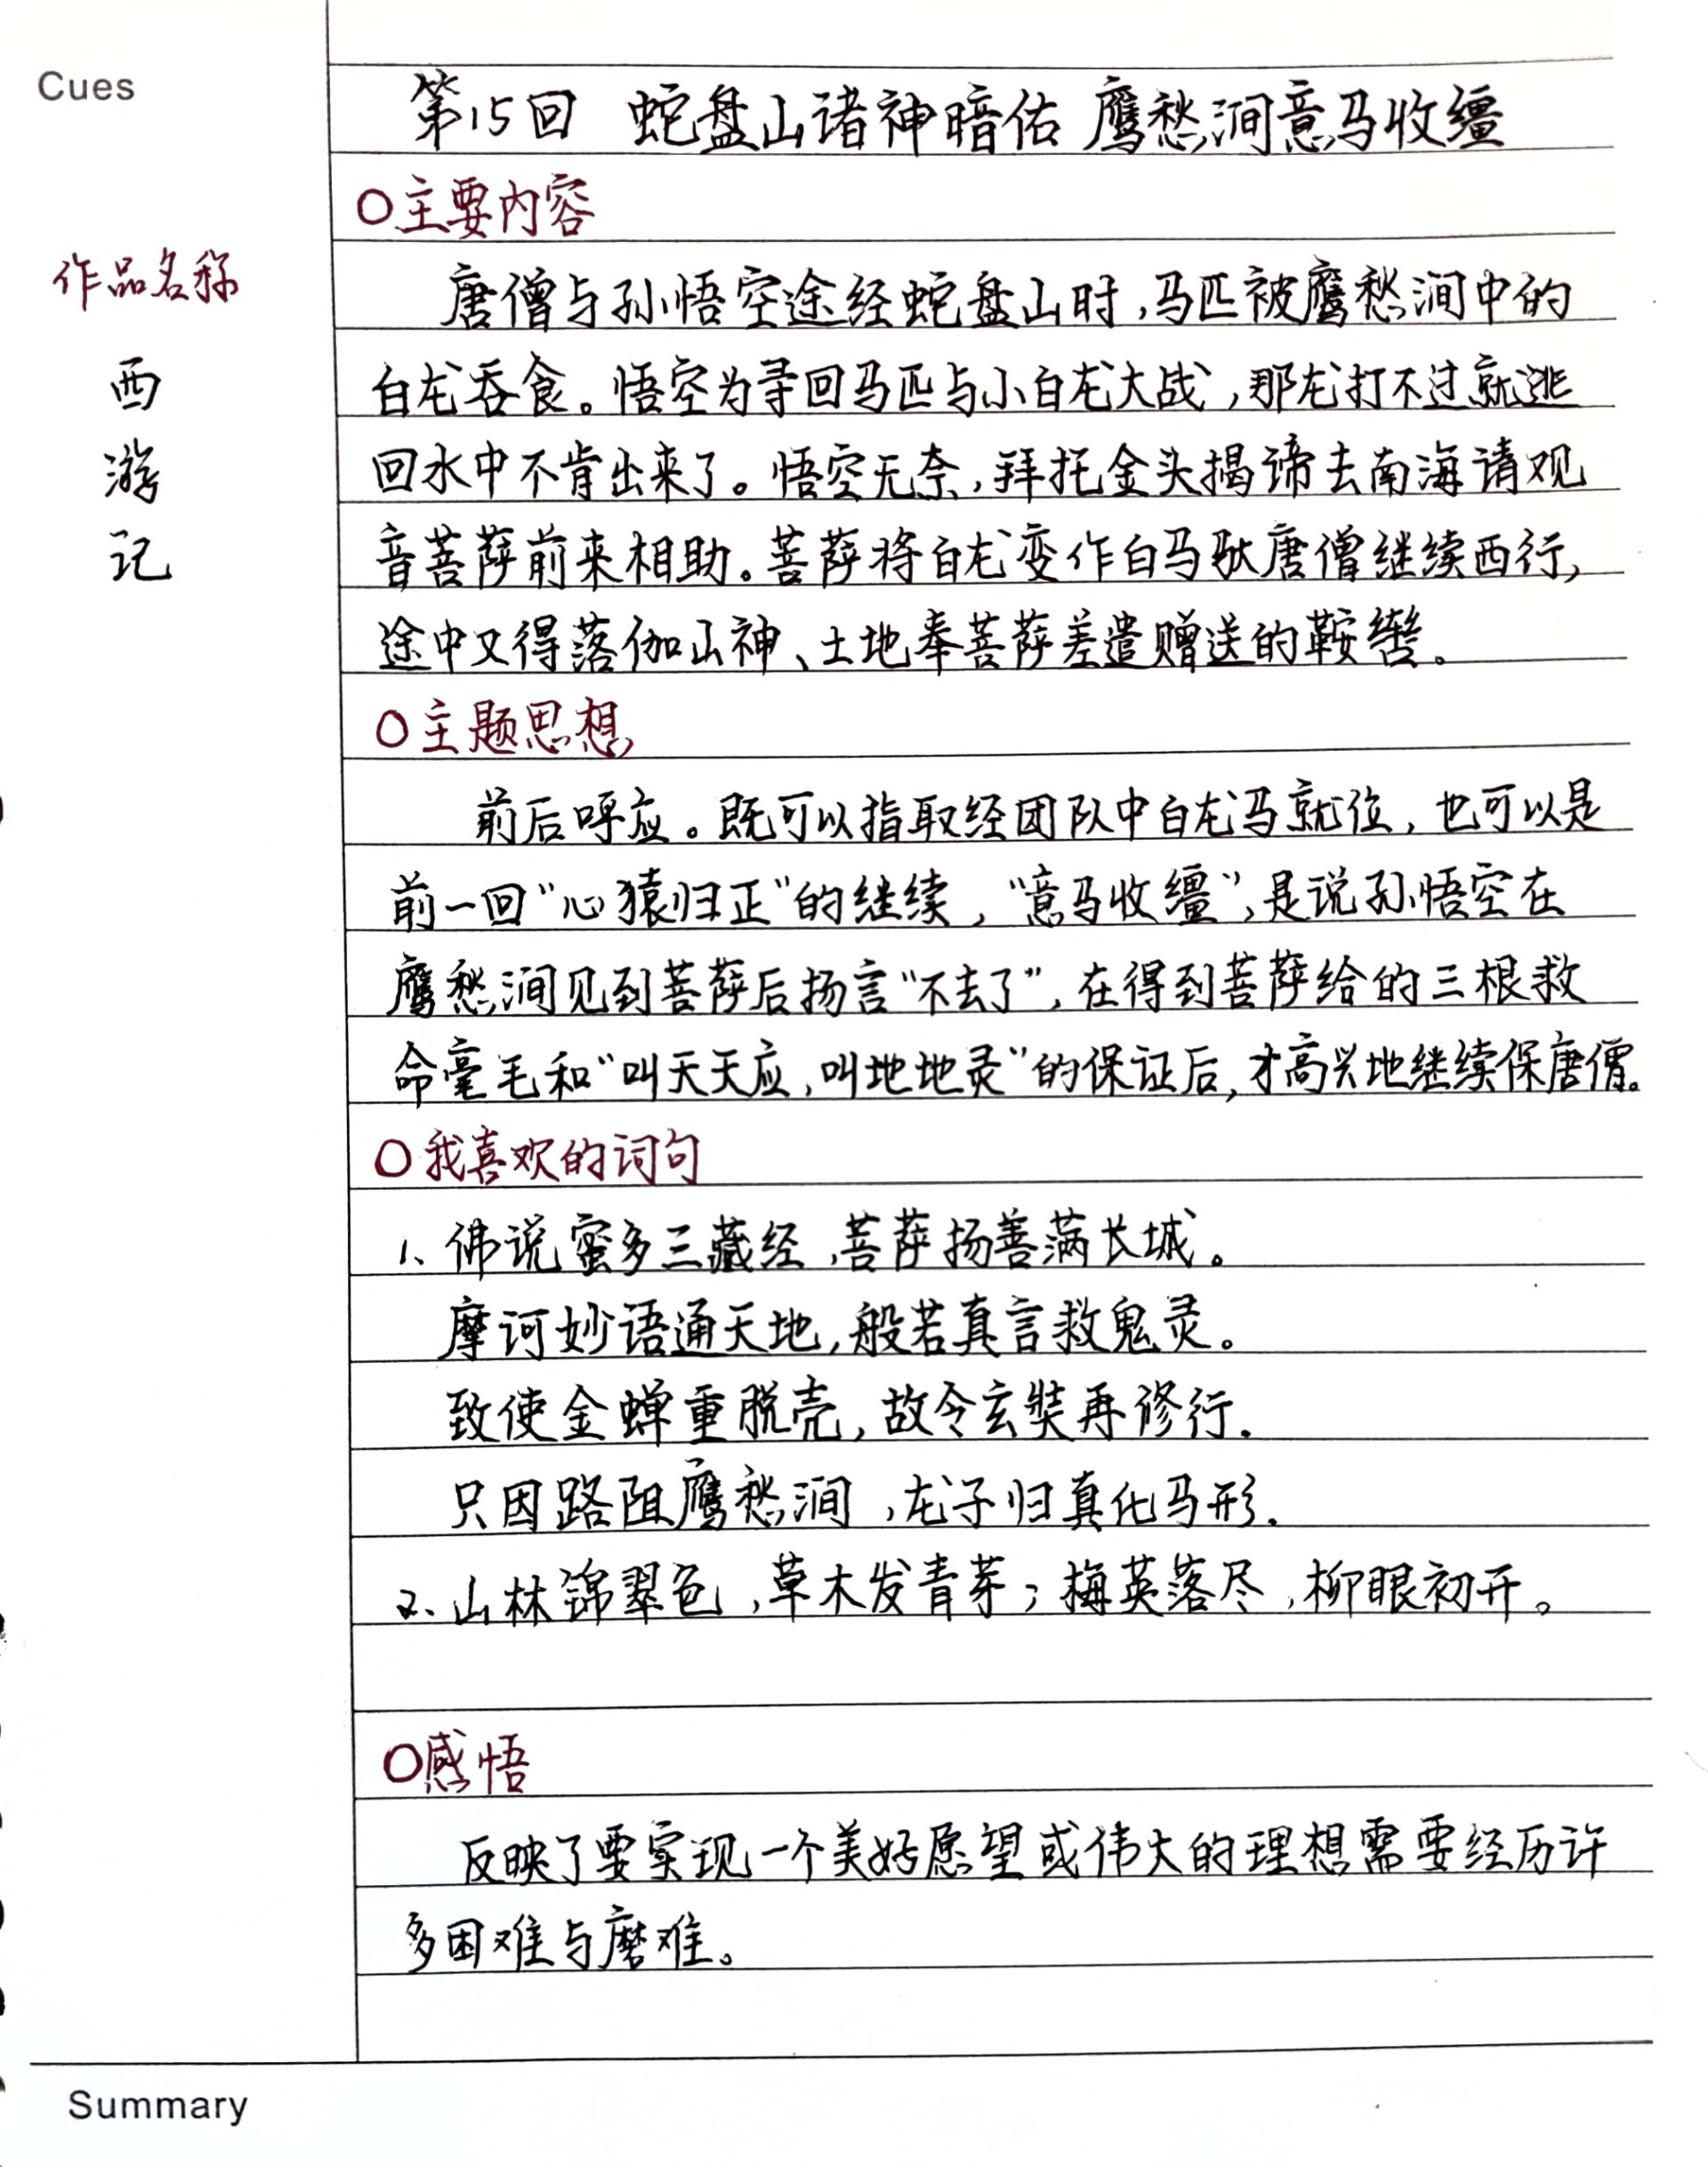 Cues
第15回 蛇盘山诸神暗佑 鹰愁涧意马收缰
○主要内容
作品名称
西
游
记
唐僧与孙悟空途经蛇盘山时,马匹被鹰愁涧中的
白龙吞食。悟空为寻回马匹与小白龙大战,那龙打不过就逃
回水中不肯出来了。悟空无奈,拜托金头揭谛去南海请观
音菩萨前来相助。菩萨将白龙变作白马驮唐僧继续西行,
途中又得落伽山神、土地奉菩萨差遣赠送的鞍辔。
○主题思想
前后呼应。既可以指取经团队中白龙马就位,也可以是
前一回“心猿归正”的继续,“意马收缰”,是说孙悟空在
鹰愁涧见到菩萨后扬言“不去了”,在得到菩萨给的三根救
命毫毛和“叫天天应,叫地地灵”的保证后,才高兴地继续保唐僧。
○我喜欢的词句
1、佛说蜜多三藏经,菩萨扬善满长城。
摩诃妙语通天地,般若真言救鬼灵。
致使金蝉重脱壳,故令玄奘再修行.
只因路阻鹰愁涧,龙子归真化马形.
2、山林锦翠色,草木发青芽;梅英落尽,柳眼初开。
○感悟
反映了要实现一个美好愿望或伟大的理想需要经历许
多困难与磨难。
Summary